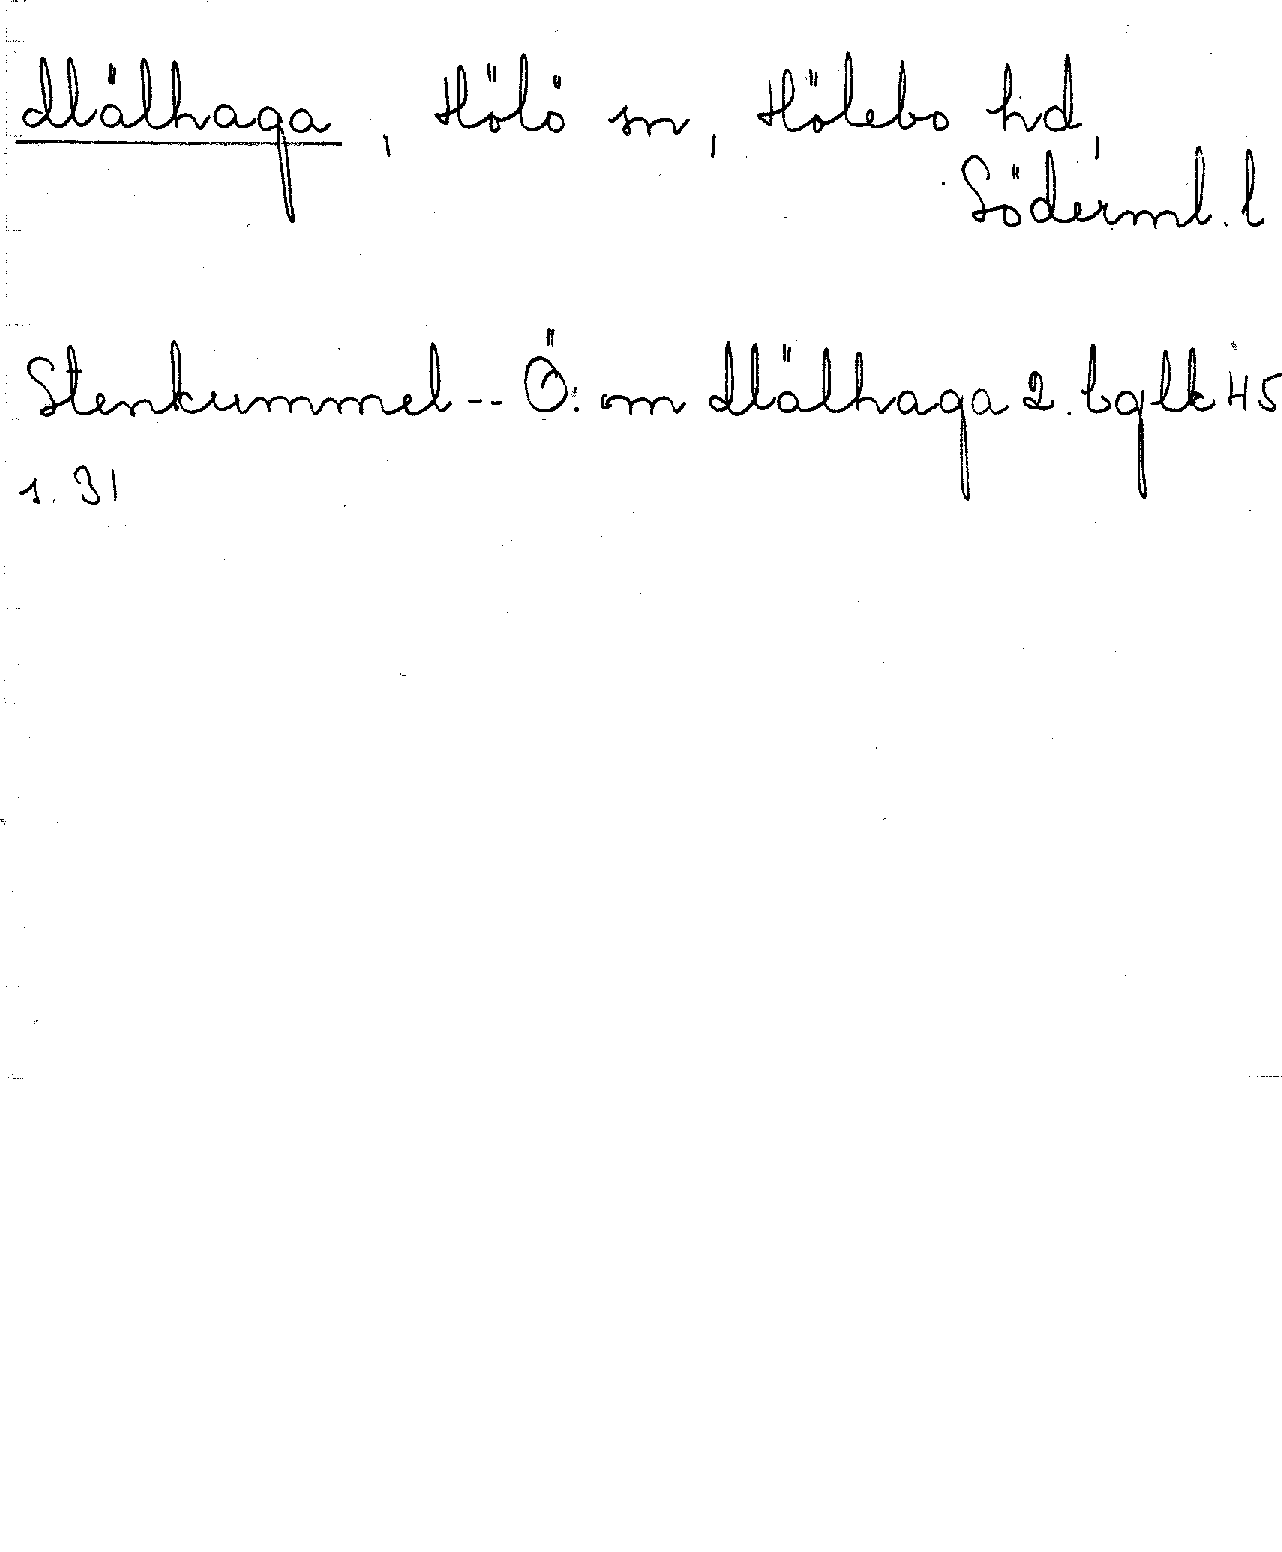 Mälhaga, Hölö sn, Hölebo hd,
Söderml. l
Stenkummel -- Ö. om Mälhaga 2. bglk 45
s. 31